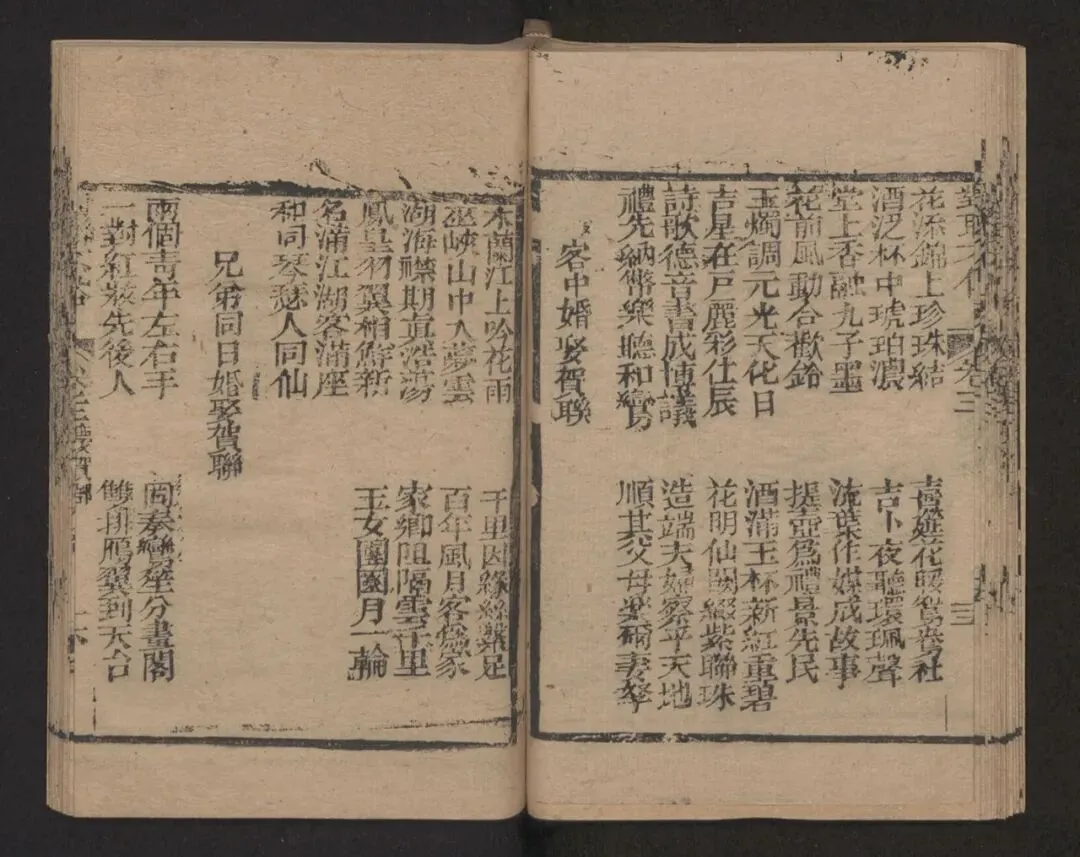 卷三
花添錦上珍珠結
喜筵花照鴛鴦社
酒泛杯中琥珀濃
吉卜夜聽環珮聲
堂上香融九子墨
流葉作媒成故事
花前風動合歡鈴
提壺為禮景先民
玉燭調元光天化日
酒滿玉杯新紅重碧
吉星在戶麗彩仕辰
花明仙闕綴紫聯珠
詩歌德音書成博議
造端夫婦察乎天地
禮先納幣樂聽和鸞
順其父母樂爾妻孥
客中婚娶賀聯
木蘭江上吟花雨
千里因緣絲繫足
巫峽山中入夢雲
百年風月客為家
湖海襟期真浩蕩
家鄉阻隔雲千里
鳳凰羽翼相鮮新
玉女團圓月一輪
名滿江湖客滿座
和同琴瑟人同仙
兄弟同日婚娶賀聯
兩個青年左右手
同奏鸞笙分畫閣
一對紅裝先後人
雙排鴈翼到天台